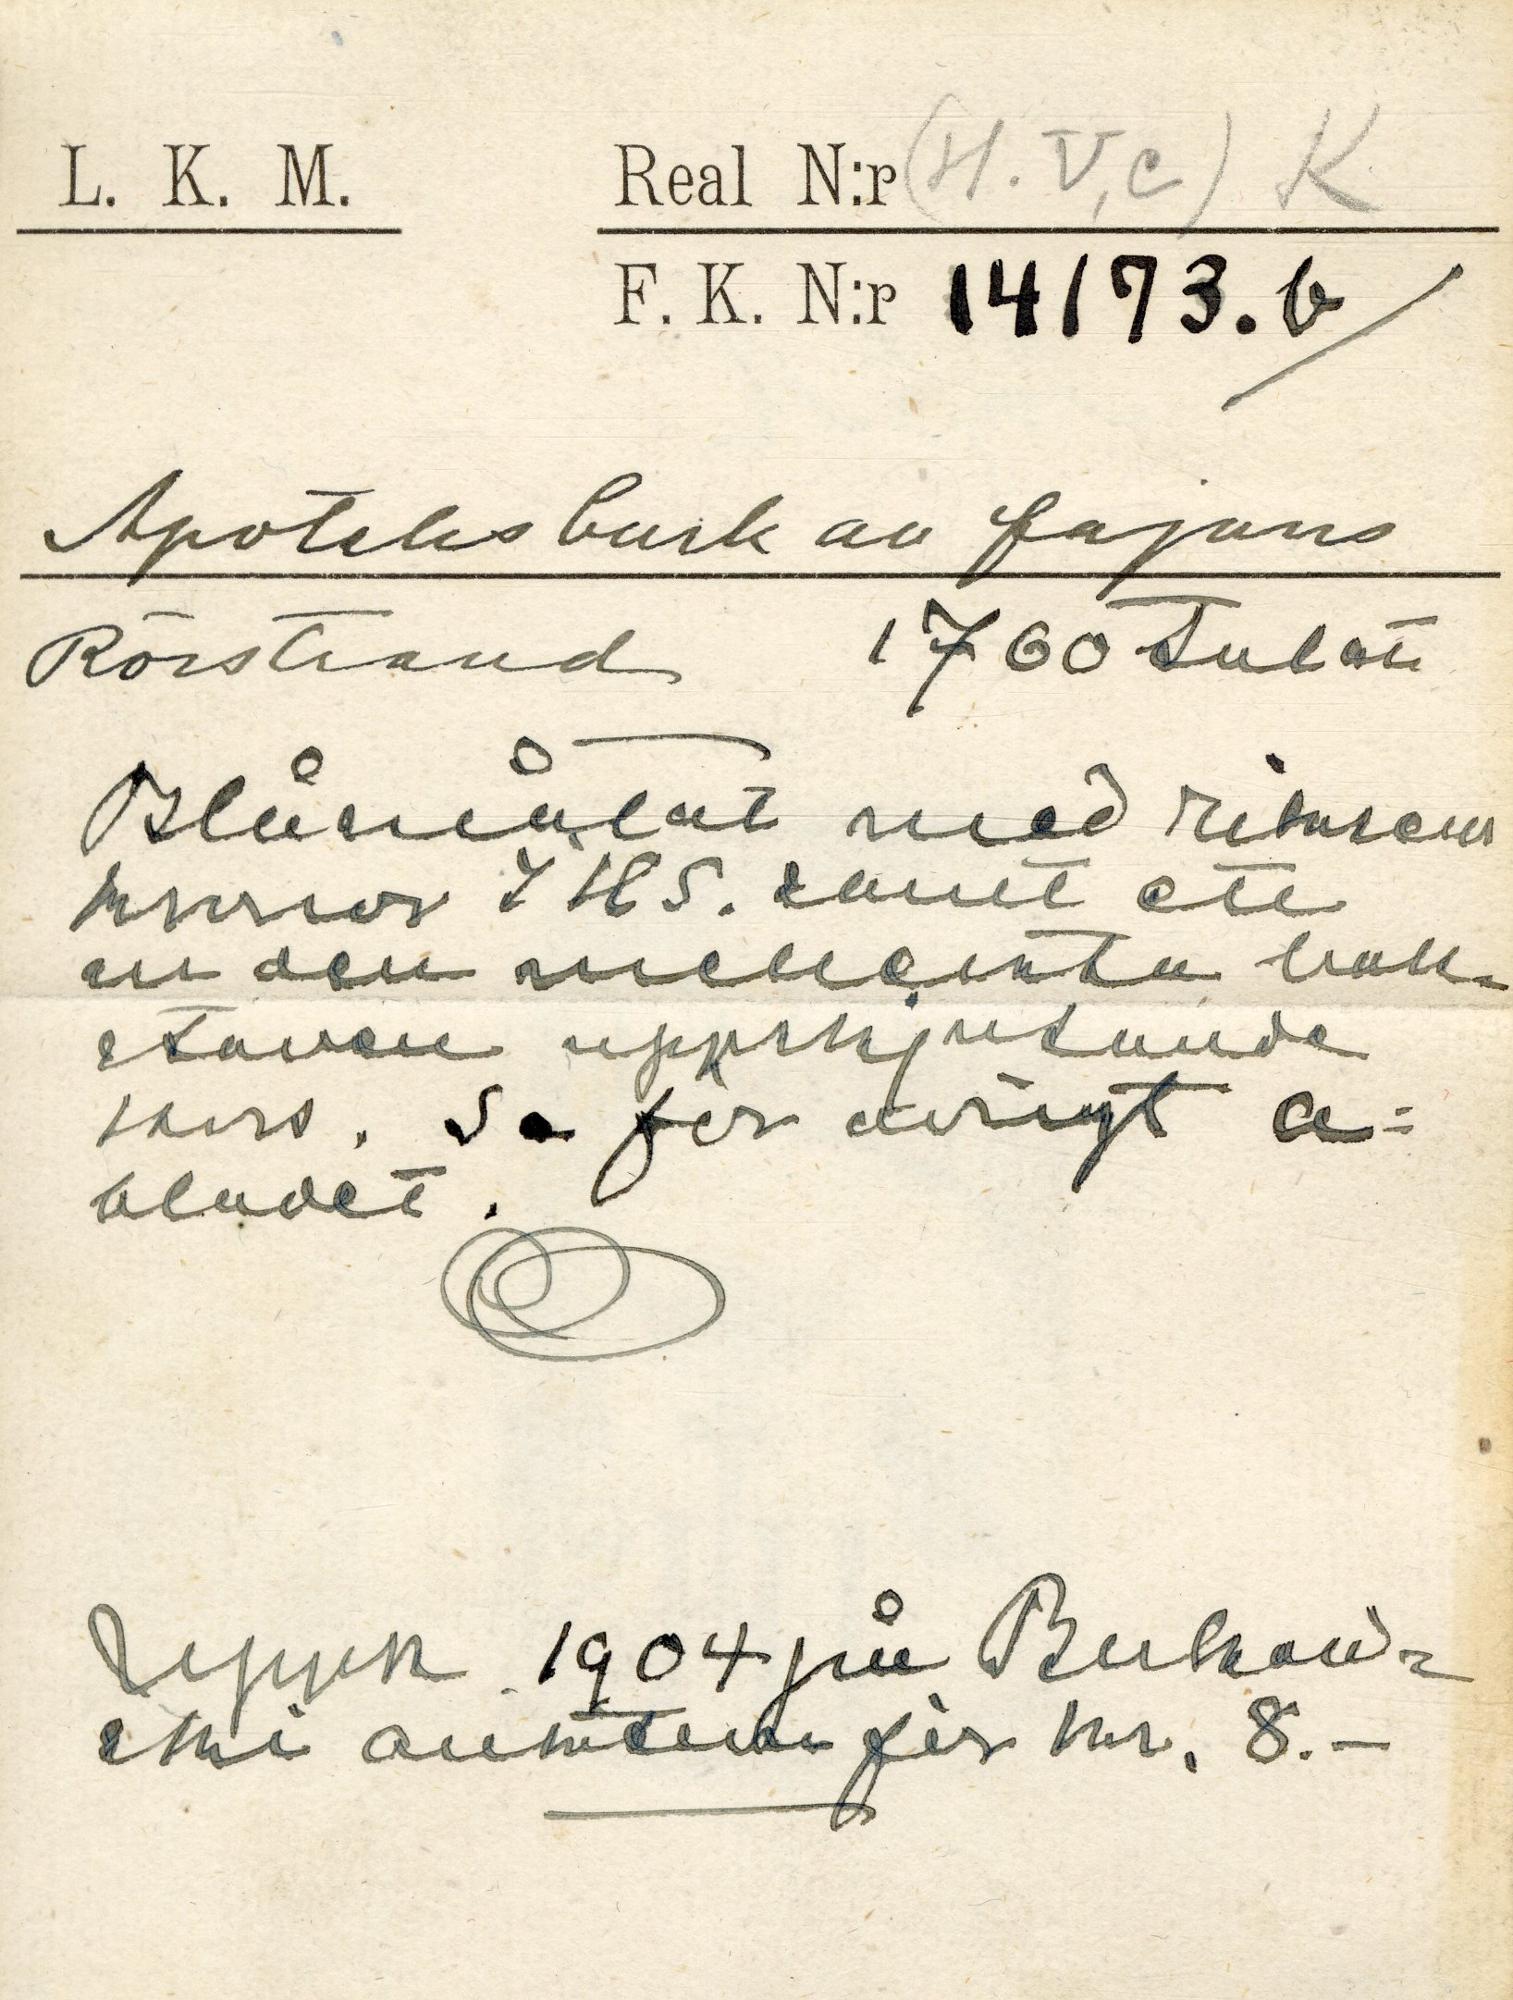 L. K. M.
Real N:r (H. V, c) K
F. K. N:r 14173.b
Apoteksburk av fajans
Rörstrand 1760 talet
Blåmålat med
kronor IHS. samt ett
ur den mellersta bok-
staven uppskjutande
kors. Se för övrigt a-
bladet.
Uppk 1904 på Bukow-
ski auktion för kr. 8.-